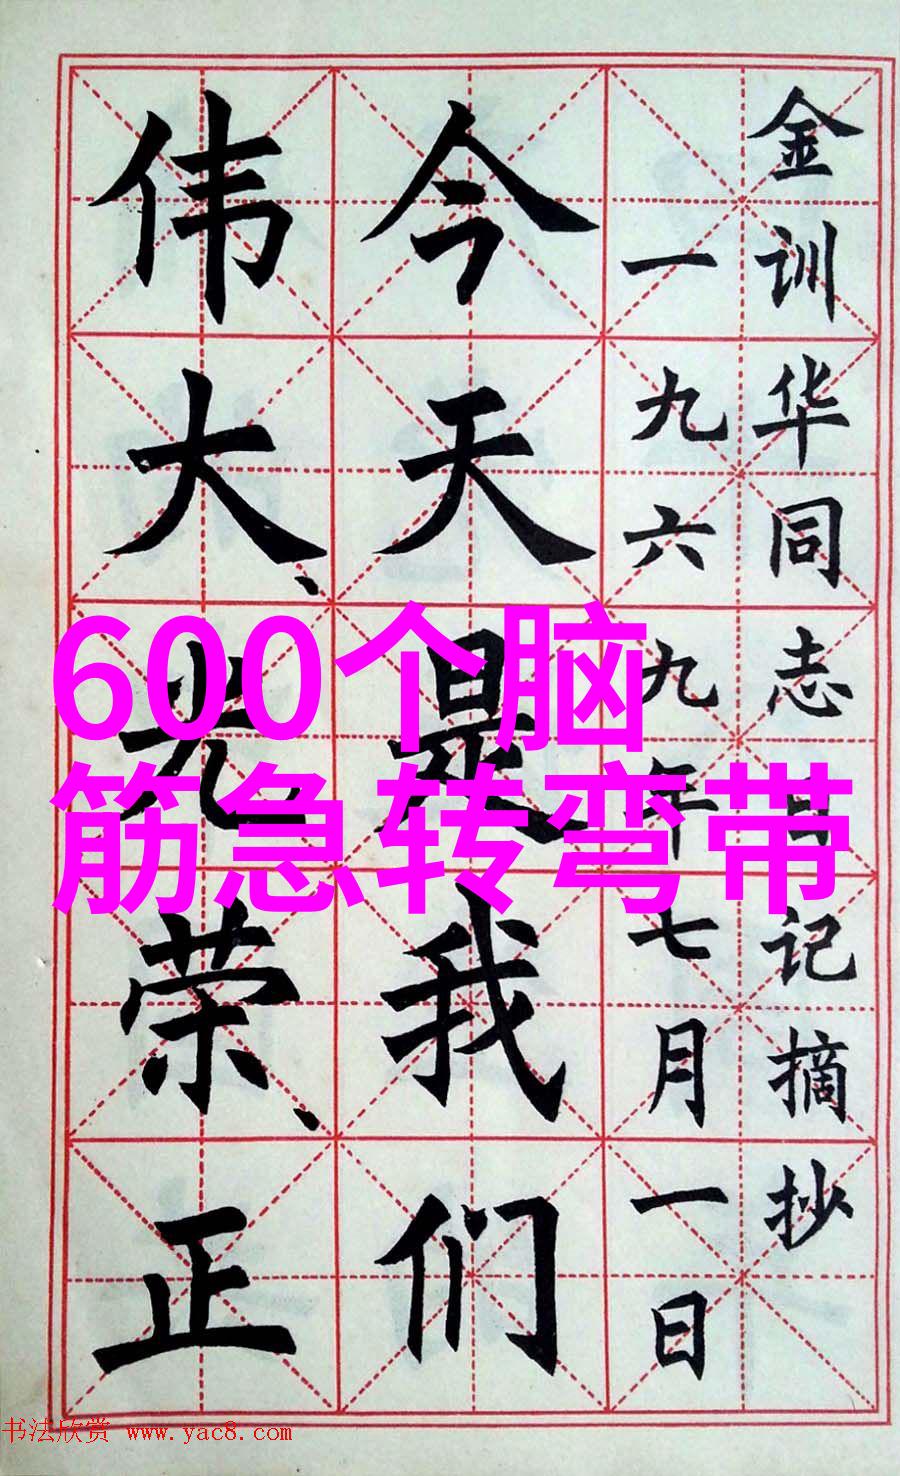 金训华同志日记摘抄
一九六九年七月一日
今天是我们
伟大、光荣、正
600个脑
筋急转弯带
书法欣赏 www.yac8.com